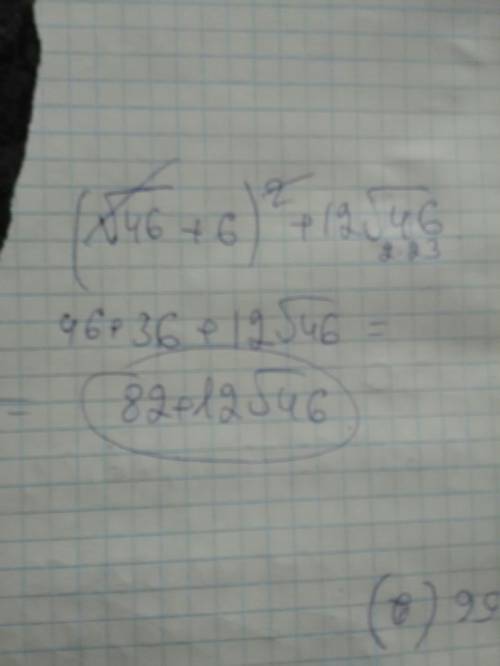 (√46 + 6)² + 12√46
2·23
46 + 36 + 12√46 =
= 82 + 12√46
(6) 99